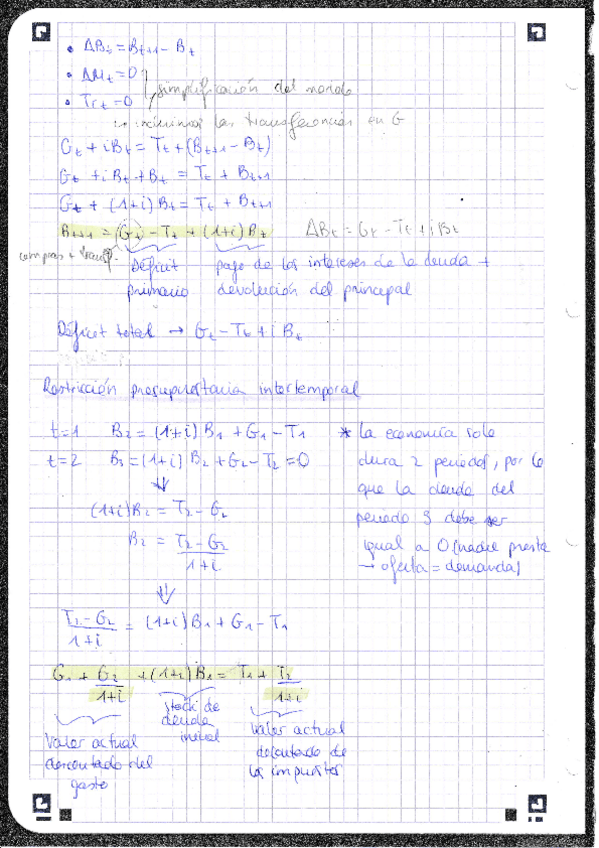 • ΔBₜ = Bₜ₊₁ - Bₜ
• ΔMₜ = 0
• Trₜ = 0
simplificación del mundo
las transferencias en G
Gₜ + iBₜ = Tₜ + (Bₜ₊₁ - Bₜ)
Gₜ + iBₜ + Bₜ = Tₜ + Bₜ₊₁
Gₜ + (1+i) Bₜ = Tₜ + Bₜ₊₁
Bₜ₊₁ = (Gₜ) - Tₜ + (1+i) Bₜ
ΔBₜ = Gₜ - Tₜ + iBₜ
compras + transf.
Déficit primario
pago de los intereses de la deuda +
devolución del principal
Déficit total → Gₜ - Tₜ + i Bₜ
Restricción presupuestaria intertemporal
t=1 B₂ = (1+i) B₁ + G₁ - T₁
t=2 B₃ = (1+i) B₂ + G₂ - T₂ = 0
* La economía solo
dura 2 periodos, por lo
que la deuda del
periodo 3 debe ser
igual a 0 (nadie presta
→ oferta = demanda)
(1+i)B₂ = T₂ - G₂
B₂ = (T₂ - G₂)/(1+i)
(T₂ - G₂)/(1+i) = (1+i) B₁ + G₁ - T₁
G₁ + G₂/(1+i) + (1+i)B₁ = T₁ + T₂/(1+i)
Valor actual
descontado del
gasto
stock de
deuda
inicial
Valor actual
descontado de
los impuestos